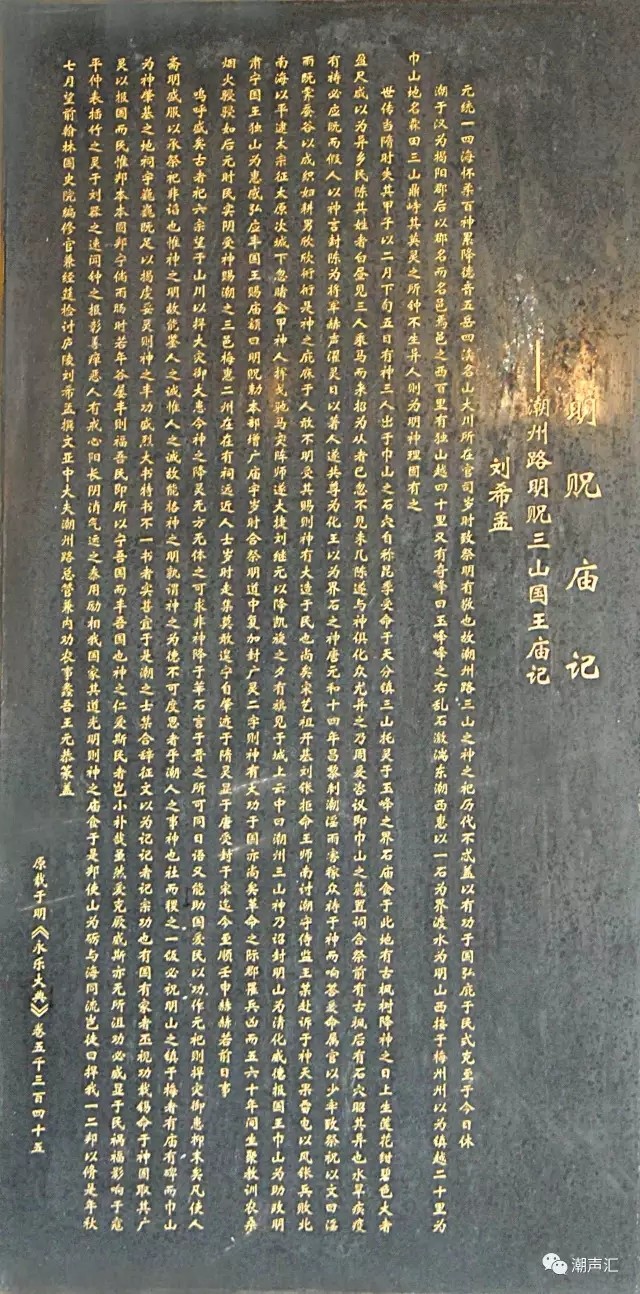 明贶庙记
——潮州路明贶三山国王庙记
刘希孟
元统一四海怀柔百神累降德音五岳四渎名山大川所在官司岁时致祭明有敬也故潮州路三山之神之祀历代不忒盖以有功于国弘庇于民式克至于今日休
潮于汉为揭阳郡后以郡名而名邑焉邑之西百里有独山越四十里又有奇峰曰玉峰峰之右乱石激湍东潮西惠以一石为界渡水为明山西接于梅州州以为镇越二十里为
巾山地名霖田三山鼎峙其英灵之所钟不生异人则为明神理固有之
世传当隋时失其甲子以二月下旬五日有神三人出于巾山之石穴自称昆季受命于天分镇三山托灵于玉峰之界石庙食于此地有古枫树降神之日上生莲花绀碧色大者
盈尺咸以为异乡民陈其姓者白昼见三人乘马而来招为从者已忽不见未几陈遂与神俱化众尤异之乃周爰咨议即巾山之麓置祠合祭前有古枫后有石穴昭其异也水旱疾疫
有祷必应既而假人以神言封陈为将军赫声濯灵日以著人遂共尊为化王以为界石之神唐元和十四年昌黎刺潮淫雨害稼众祷于神而响答爰命属官以少牢致祭祝以文曰淫
雨既霁蚕谷以成织妇耕男欣欣衎衎是神之庇庥于人敢不明受其赐则神有大造于民也尚矣宋艺祖开基刘鋹拒命王师南讨潮守侍监王某赴诉于神天果雷电以风鋹兵败北
南海以平逮太宗征太原次城下忽睹金甲神人挥戈驰马突阵师遂大捷刘继元以降凯旋之夕有旗见于城上云中曰潮州三山神乃诏封明山为清化威德报国王巾山为助政明
肃宁国王独山为惠威弘应丰国王赐庙额曰明贶敕本部增广庙宇岁时合祭明道中复加封广灵二字则神有大功于国亦尚矣革命之际郡罹兵凶而五六十年间生聚教训农桑
烟火骎骎如后元时民实阴受神赐潮之三邑梅惠二州在在有祠远近人士岁时走集莫敢遑宁自肇迹于隋灵显于唐受封于宋迄今至顺壬申赫赫若前日事
呜呼盛矣古者祀六宗望于山川以捍大灾御大患今神之降灵无方无体之可求非神降于莘石言于晋之所可同日语又能助国爱民以功作元祀则捍灾御患抑末矣凡使人
斋明盛服以承祭祀非谄也惟神之明故能鉴人之诚惟人之诚故能格神之明孰谓神之为德不可度思者乎潮人之事神也社而稷之一饭必祝明山之镇于梅者有庙有碑而巾山
为神肇基之地祠宇巍巍既足以揭虔妥灵则神之丰功盛烈大书特书不一书者实甚宜于是潮之士某合辞征文以为记记者记宗功也有国有家者丕视功载锡命于神固取其广
灵以报国而民惟邦本本固邦宁倘雨旸时若年谷屡丰则福吾民即所以宁吾国而丰吾国也神之仁爱斯民者岂小补哉虽然爱克厥威斯亦无所沮功必威显于民祸福影响于寇
平仲表插竹之灵于刘器之速闻钟之报彰善瘅恶人有戒心阳长阴消气运之泰用励相我国家其道光明则神之庙食于是邦使山为砺与海同流岂徒曰捍我一二邦以修是年秋
七月望前翰林国史院编修官兼经筵检讨庐陵刘希孟撰文亚中大夫潮州路总管兼内劝农事蠡吾王元恭篆盖
原载于明《永乐大典》卷五千三百四十五
潮声汇